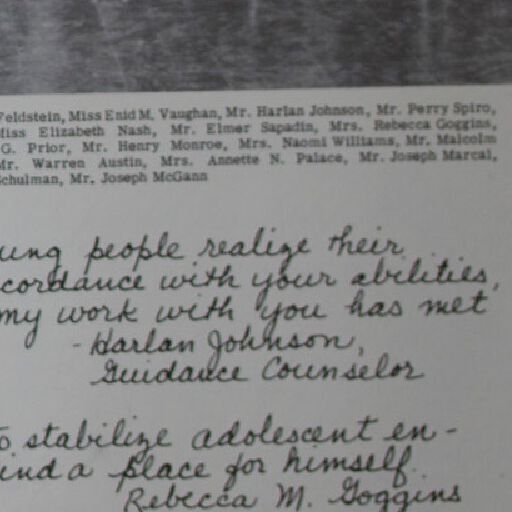 Feldstein, Miss Enid M. Vaughan, Mr. Harlan Johnson, Mr. Perry Spiro,
Miss Elizabeth Nash, Mr. Elmer Sapadin, Mrs. Rebecca Goggins,
G. Prior, Mr. Henry Monroe, Mrs. Naomi Williams, Mr. Malcolm
Mr. Warren Austin, Mrs. Annette N. Palace, Mr. Joseph Marcal,
Schulman, Mr. Joseph McGann
ung people realize their
cordance with your abilities,
my work with you has met
-Harlan Johnson,
Guidance Counselor
to stabilize adolescent en-
ind a place for himself.
Rebecca M. Goggins